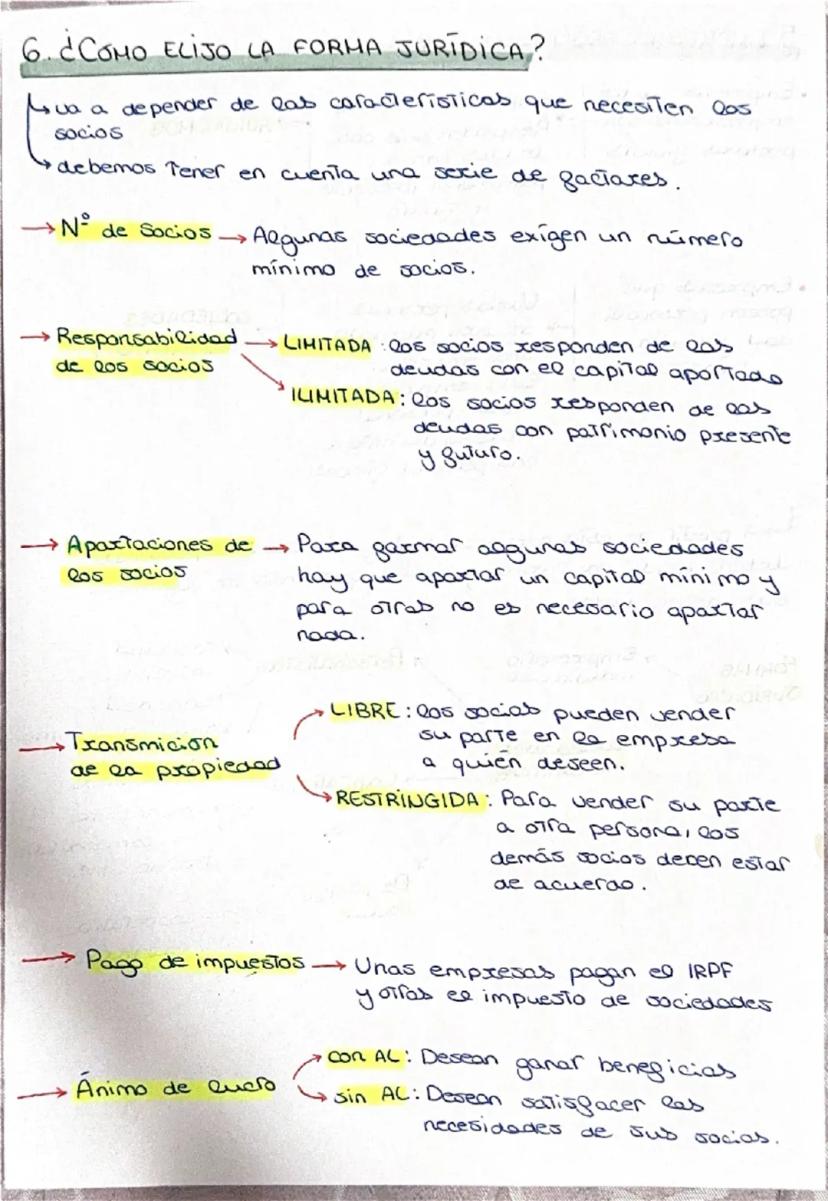 6. ¿CÓMO ELIJO LA FORMA JURÍDICA?
va a depender de las características que necesiten los
socios
debemos tener en cuenta una serie de factores.
Nº de Socios → Algunas sociedades exigen un número
mínimo de socios.
Responsabilidad → LIMITADA: los socios responden de las
de los socios deudas con el capital aportado
ILIMITADA: los socios responden de las
deudas con patrimonio presente
y futuro.
Aportaciones de → Para formar algunas sociedades
los socios hay que aportar un capital mínimo y
para otras no es necesario aportar
nada.
LIBRE: los socios pueden vender
Transmición su parte en la empresa
de la propiedad a quién deseen.
RESTRINGIDA: Para vender su parte
a otra persona, los
demás socios deben estar
de acuerdo.
Pago de impuestos → Unas empresas pagan el IRPF
y otras el impuesto de sociedades
con AL: Desean ganar beneficios
Ánimo de lucro
sin AL: Desean satisfacer las
necesidades de sus socios.